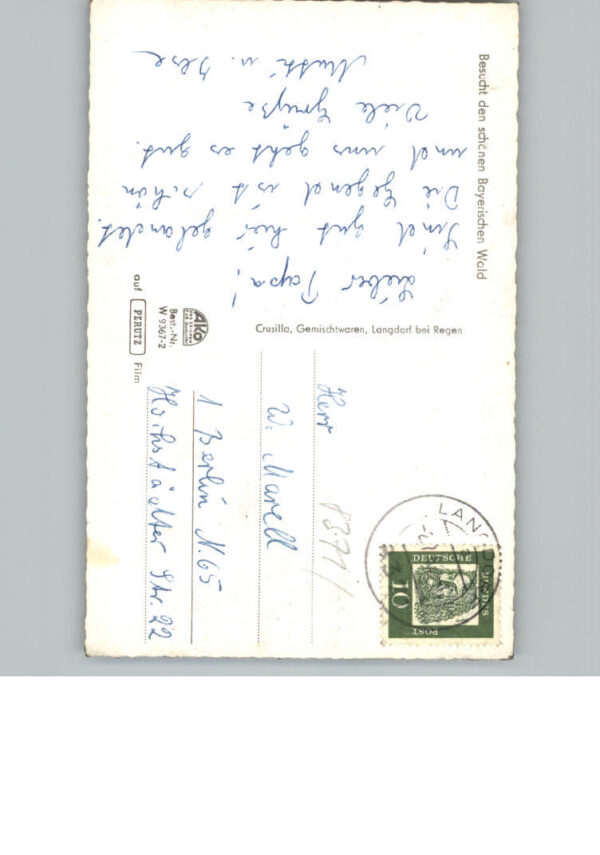 Besucht den schönen Bayerischen Wald
Lieber Papa!
Sind gut hier gelandet.
Die Gegend ist schön
und uns geht es gut.
Viele Grüße
Mutti u.
Crusilla, Gemischtwaren, Langdorf bei Regen
AKO
Best.-Nr.
W 9367-2
auf PERUTZ Film
Herr
W. Marell
1 Berlin N. 65
Hochstädter Str. 22
8371/
LANGDORF
DEUTSCHE
POST
10